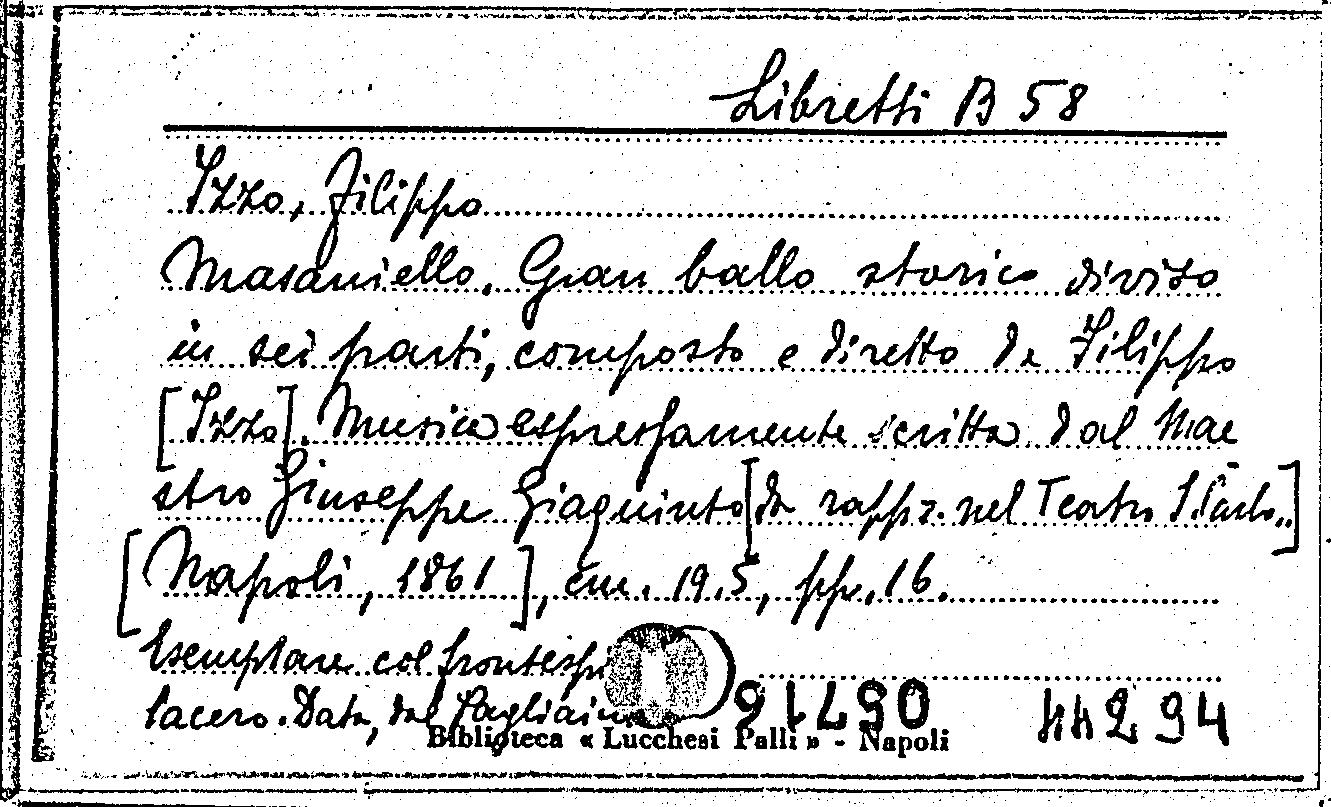 Libretti B 58
Izzo, Filippo
Masaniello. Gran ballo storico diviso
in sei parti, composto e diretto da Filippo
[Izzo]. Musica espressamente scritta dal Mae
stro Giuseppe Giaquinto [da rappr. nel Teatro S. Carlo..]
[Napoli, 1861], cm. 19.5, pp. 16.
Esemplare col
lacero. Data, dal
Biblioteca « Lucchesi Palli » - Napoli
44294